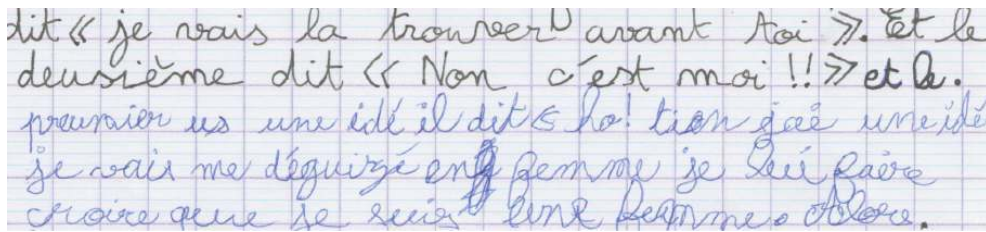 dit « je vais la trouver avant toi ». Et le
deusième dit « Non c'est moi !! » et le.
preumier us une idé il dit « ho! tien j'aé une idé
je vais me déguizé en femme je lui faire
croire que je suis une femme. Alors.